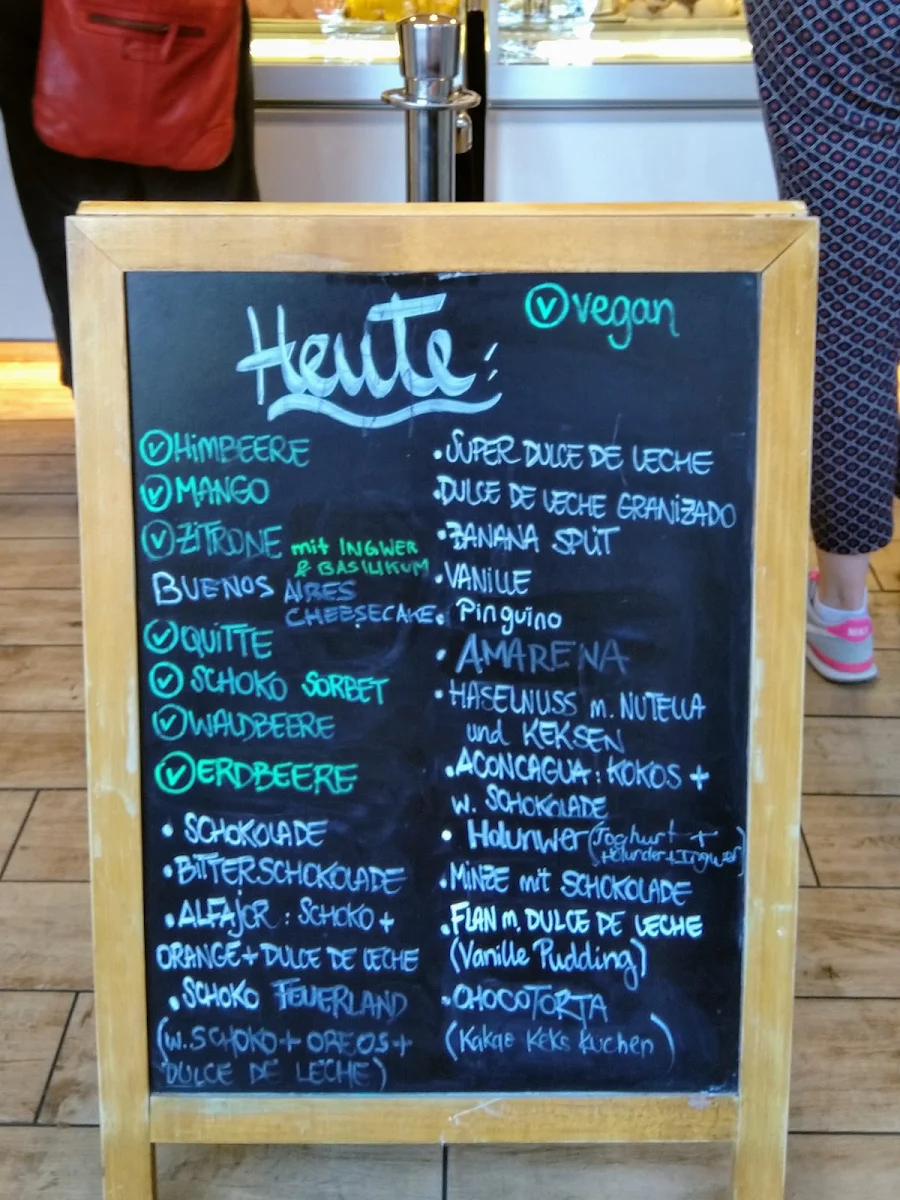 Heute:
vegan
HIMBEERE
MANGO
ZITRONE mit INGWER
& BASILIKUM
BUENOS AIRES
CHEESECAKE
QUITTE
SCHOKO SORBET
WALDBEERE
ERDBEERE
• SCHOKOLADE
• BITTERSCHOKOLADE
• ALFAJOR: SCHOKO +
ORANGE + DULCE DE LECHE
• SCHOKO FEUERLAND
(W. SCHOKO + OREOS +
DULCE DE LECHE)
• SUPER DULCE DE LECHE
• DULCE DE LECHE GRANIZADO
• BANANA SPLIT
• VANILLE
• Pinguino
• AMARENA
• HASELNUSS m. NUTELLA
und KEKSEN
• ACONCAGUA: KOKOS +
W. SCHOKOLADE
• Holunwer (Joghurt +
Holunder + Ingwer)
• MINZE mit SCHOKOLADE
• FLAN m. DULCE DE LECHE
(Vanille Pudding)
• CHOCOTORTA
(Kakao Keks Kuchen)
NIKE